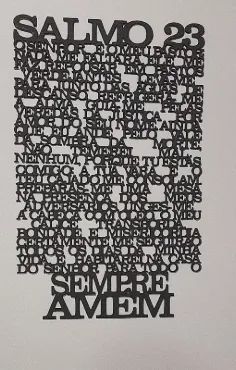 SALMO 23
O SENHOR É O MEU PASTOR
NADA ME FALTARA ELE ME
FAZ REPOUSAR EM PASTOS
VERDEJANTES LEVA-ME
PARA JUNTO DAS ÁGUAS DE
DESCANSO; REFRIGERA-ME
A ALMA. GUIA-ME PELAS
VEREDAS DA JUSTIÇA POR
AMOR DO SEU NOME. AINDA
QUE EU ANDE PELO VALE
DA SOMBRA DA MORTE,
NÃO TEMEREI MAL
NENHUM, PORQUE TU ESTÁS
COMIGO; A TUA VARA E O
TEU CAJADO ME CONSOLAM
PREPARAS-ME UMA MESA
NA PRESENÇA DOS MEUS
ADVERSÁRIOS, UNGES-ME
A CABEÇA COM ÓLEO; O MEU
CÁLICE TRANSBORDA.
BONDADE E MISERICÓRDIA
CERTAMENTE ME SEGUIRÃO
TODOS OS DIAS DA MINHA
VIDA; E HABITAREI NA CASA
DO SENHOR PARA TODO O
SEMPRE
AMÉM